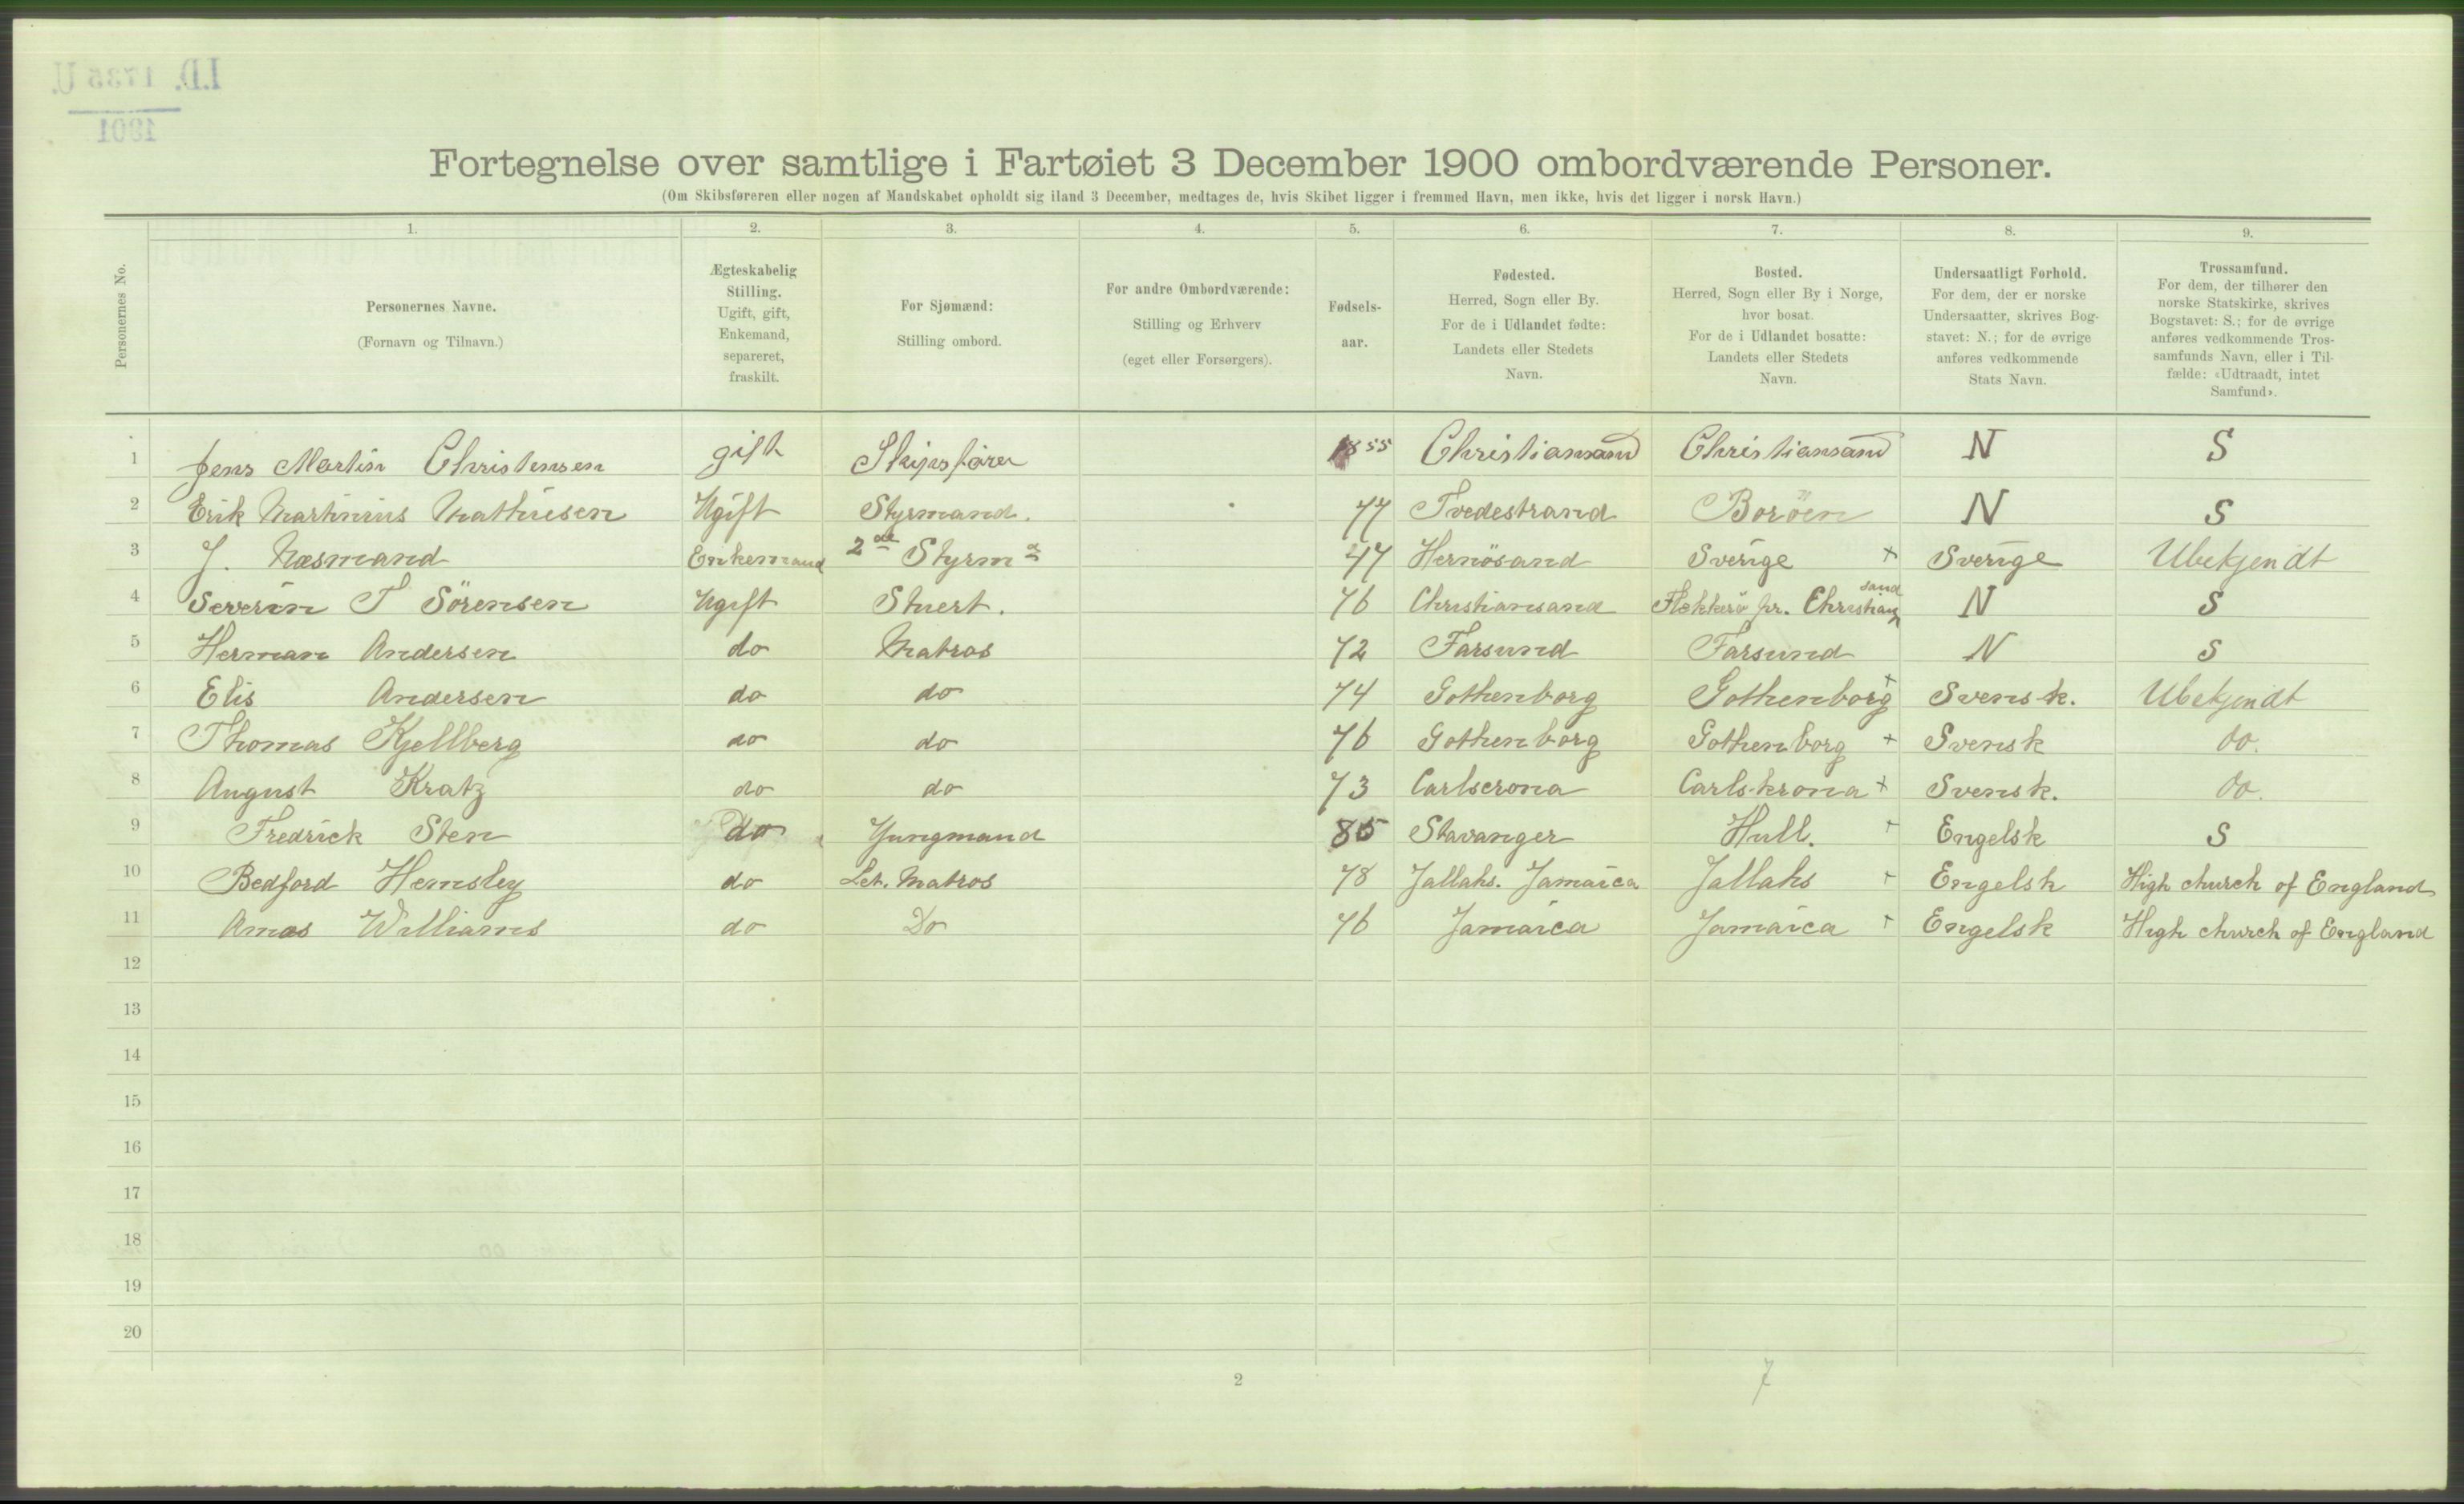 I.D. 1735 U.
1901
Fortegnelse over samtlige i Fartøiet 3 December 1900 ombordværende Personer.
(Om Skibsføreren eller nogen af Mandskabet opholdt sig iland 3 December, medtages de, hvis Skibet ligger i fremmed Havn, men ikke, hvis det ligger i norsk Havn.)
1. 2. 3. 4. 5. 6. 7. 8. 9.
Personernes No.
Personernes Navne.
(Fornavn og Tilnavn.)
Ægteskabelig
Stilling.
Ugift, gift,
Enkemand,
separeret,
fraskilt.
For Sjømænd:
Stilling ombord.
For andre Ombordværende:
Stilling og Erhverv
(eget eller Forsørgers).
Fødsels-
aar.
Fødested.
Herred, Sogn eller By.
For de i Udlandet fødte:
Landets eller Stedets
Navn.
Bosted.
Herred, Sogn eller By i Norge,
hvor bosat.
For de i Udlandet bosatte:
Landets eller Stedets
Navn.
Undersaatligt Forhold.
For dem, der er norske
Undersaatter, skrives Bog-
stavet: N.; for de øvrige
anføres vedkommende
Stats Navn.
Trossamfund.
For dem, der tilhører den
norske Statskirke, skrives
Bogstavet: S.; for de øvrige
anføres vedkommende Tros-
samfunds Navn, eller i Til-
fælde: «Udtraadt, intet
Samfund».
1 Jens Martin Christensen gift Skipsfører 1855 Christiansand Christiansand N S
2 Erik Martinius Mathiesen Ugift Styrmand. 77 Tvedestrand Boröen N S
3 J. Næsmand Enkemand 2de Styrmd 47 Hernösand Sverige + Sverige Ubekjendt
4 Severin T Sörensen Ugift Stuert. 76 Christiansand Flekkerö pr. Christiansand N S
5 Herman Andersen do Matros 72 Farsund Farsund N S
6 Elis Andersen do do 74 Gothenborg Gothenborg + Svensk. Ubekjendt
7 Thomas Kjellberg do do 76 Gothenborg Gothenborg + Svensk do.
8 August Kratz do do 73 Carlscrona Carlskrona + Svensk. do.
9 Fredrick Sten do Yungmand 85 Stavanger Hull. + Engelsk S
10 Bedford Hemsley do Let. Matros 78 Jallahs. Jamaica Jallahs + Engelsk High church of England
11 Amos Williams do Do 76 Jamaica Jamaica + Engelsk High church of England
12
13
14
15
16
17
18
19
20
2
7